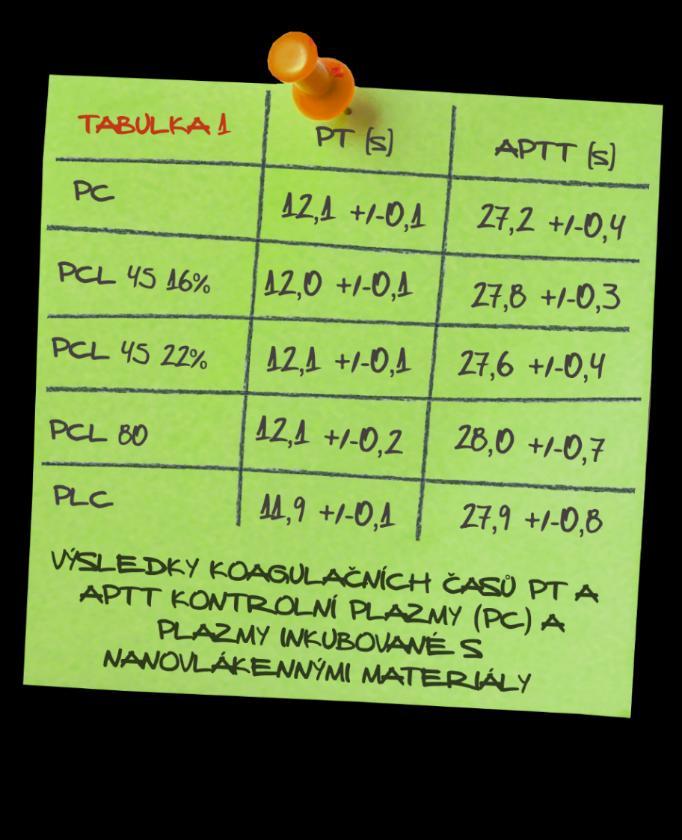 TABULKA 1 PT [s] APTT [s]
PC 12,1 +/-0,1 27,2 +/-0,4
PCL 45 16% 12,0 +/-0,1 27,8 +/-0,3
PCL 45 22% 12,1 +/-0,1 27,6 +/-0,4
PCL 80 12,1 +/-0,2 28,0 +/-0,7
PLC 11,9 +/-0,1 27,9 +/-0,8
VÝSLEDKY KOAGULAČNÍCH ČASŮ PT A
APTT KONTROLNÍ PLAZMY (PC) A
PLAZMY INKUBOVANÉ S
NANOVLÁKENNÝMI MATERIÁLY